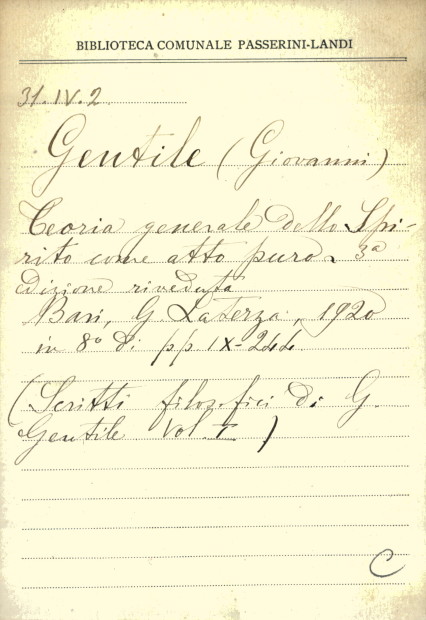 BIBLIOTECA COMUNALE PASSERINI-LANDI
31.IV.2
Gentile (Giovanni)
Teoria generale dello Spi-
rito come atto puro. 3ª
edizione riveduta
Bari, G. Laterza, 1920
in 8º di pp IX-244
(Scritti filosofici di G.
Gentile Vol. I)
C